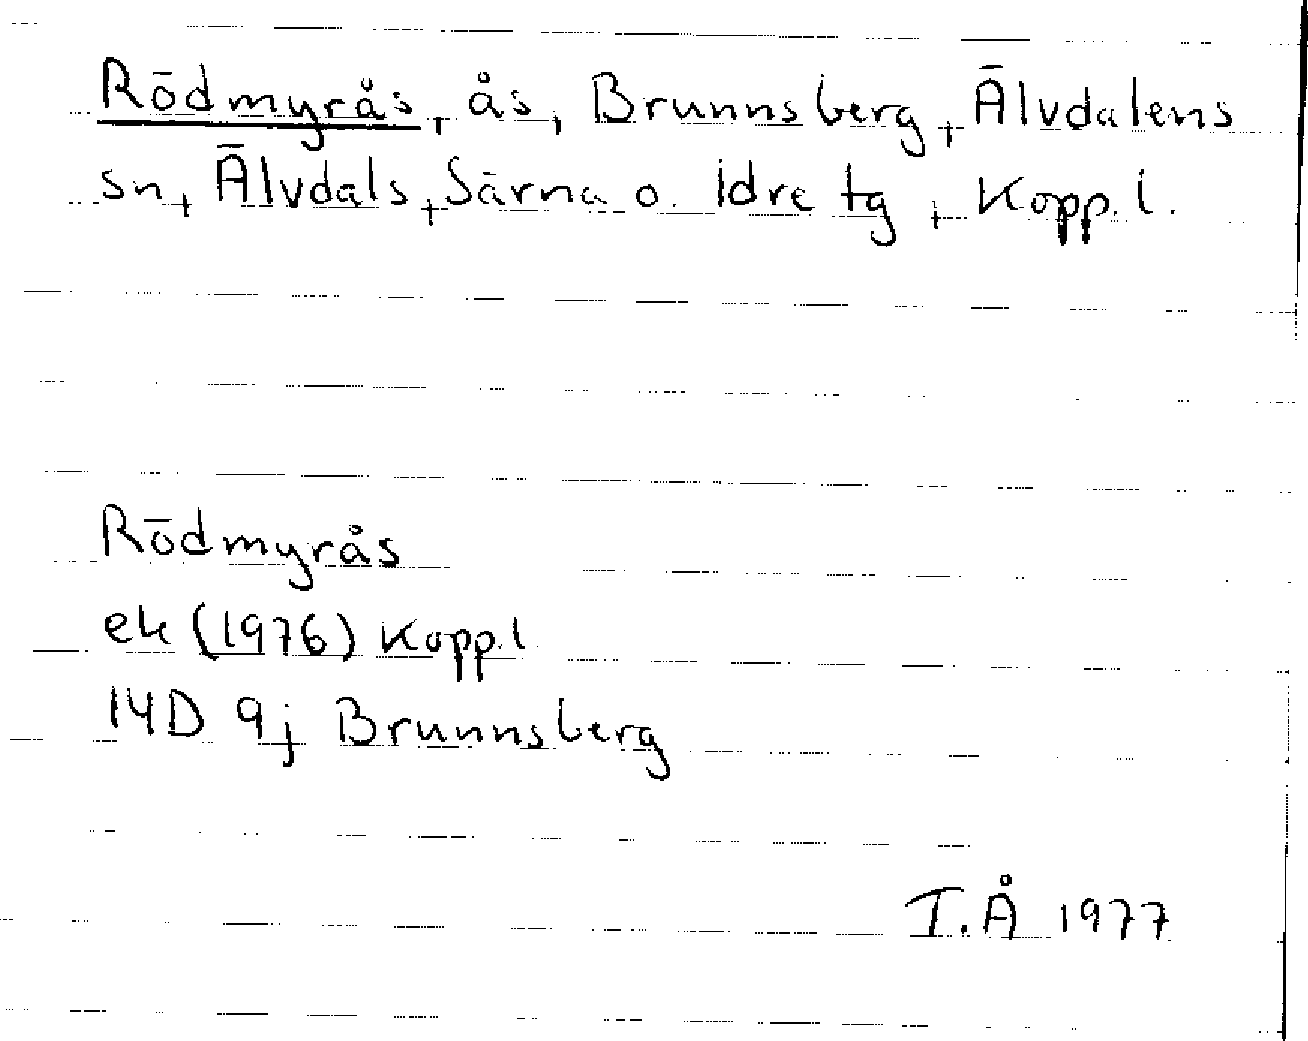 Rödmyrås, ås, Brunnsberg, Älvdalens
sn, Älvdals, Särna o. Idre tg, Kopp. l.
Rödmyrås
ek (1976) Kopp. l
14D 9j Brunnsberg
I.Å 1977